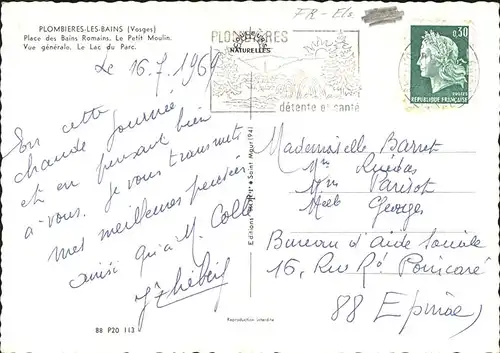 FR-Els
PLOMBIERES-LES-BAINS (Vosges)
Place des Bains Romains. Le Petit Moulin.
Vue générale. Le Lac du Parc.
PLOMBIERES
NATURELLES
détente et santé
0,30
POSTES
REPUBLIQUE FRANÇAISE
Le 16.7.1969
En cette
chaude journée
et en pensant bien
à vous. Je vous transmet
mes meilleures pensées
ainsi qu'à M. Colle
Editions
Saint Maur (94)
Mademoiselle Barret
Parisot
Georges
Bureau d'aide Sociale
16, Rue Rd Poincaré
88 Epinal
88 P20 113
Reproduction interdite